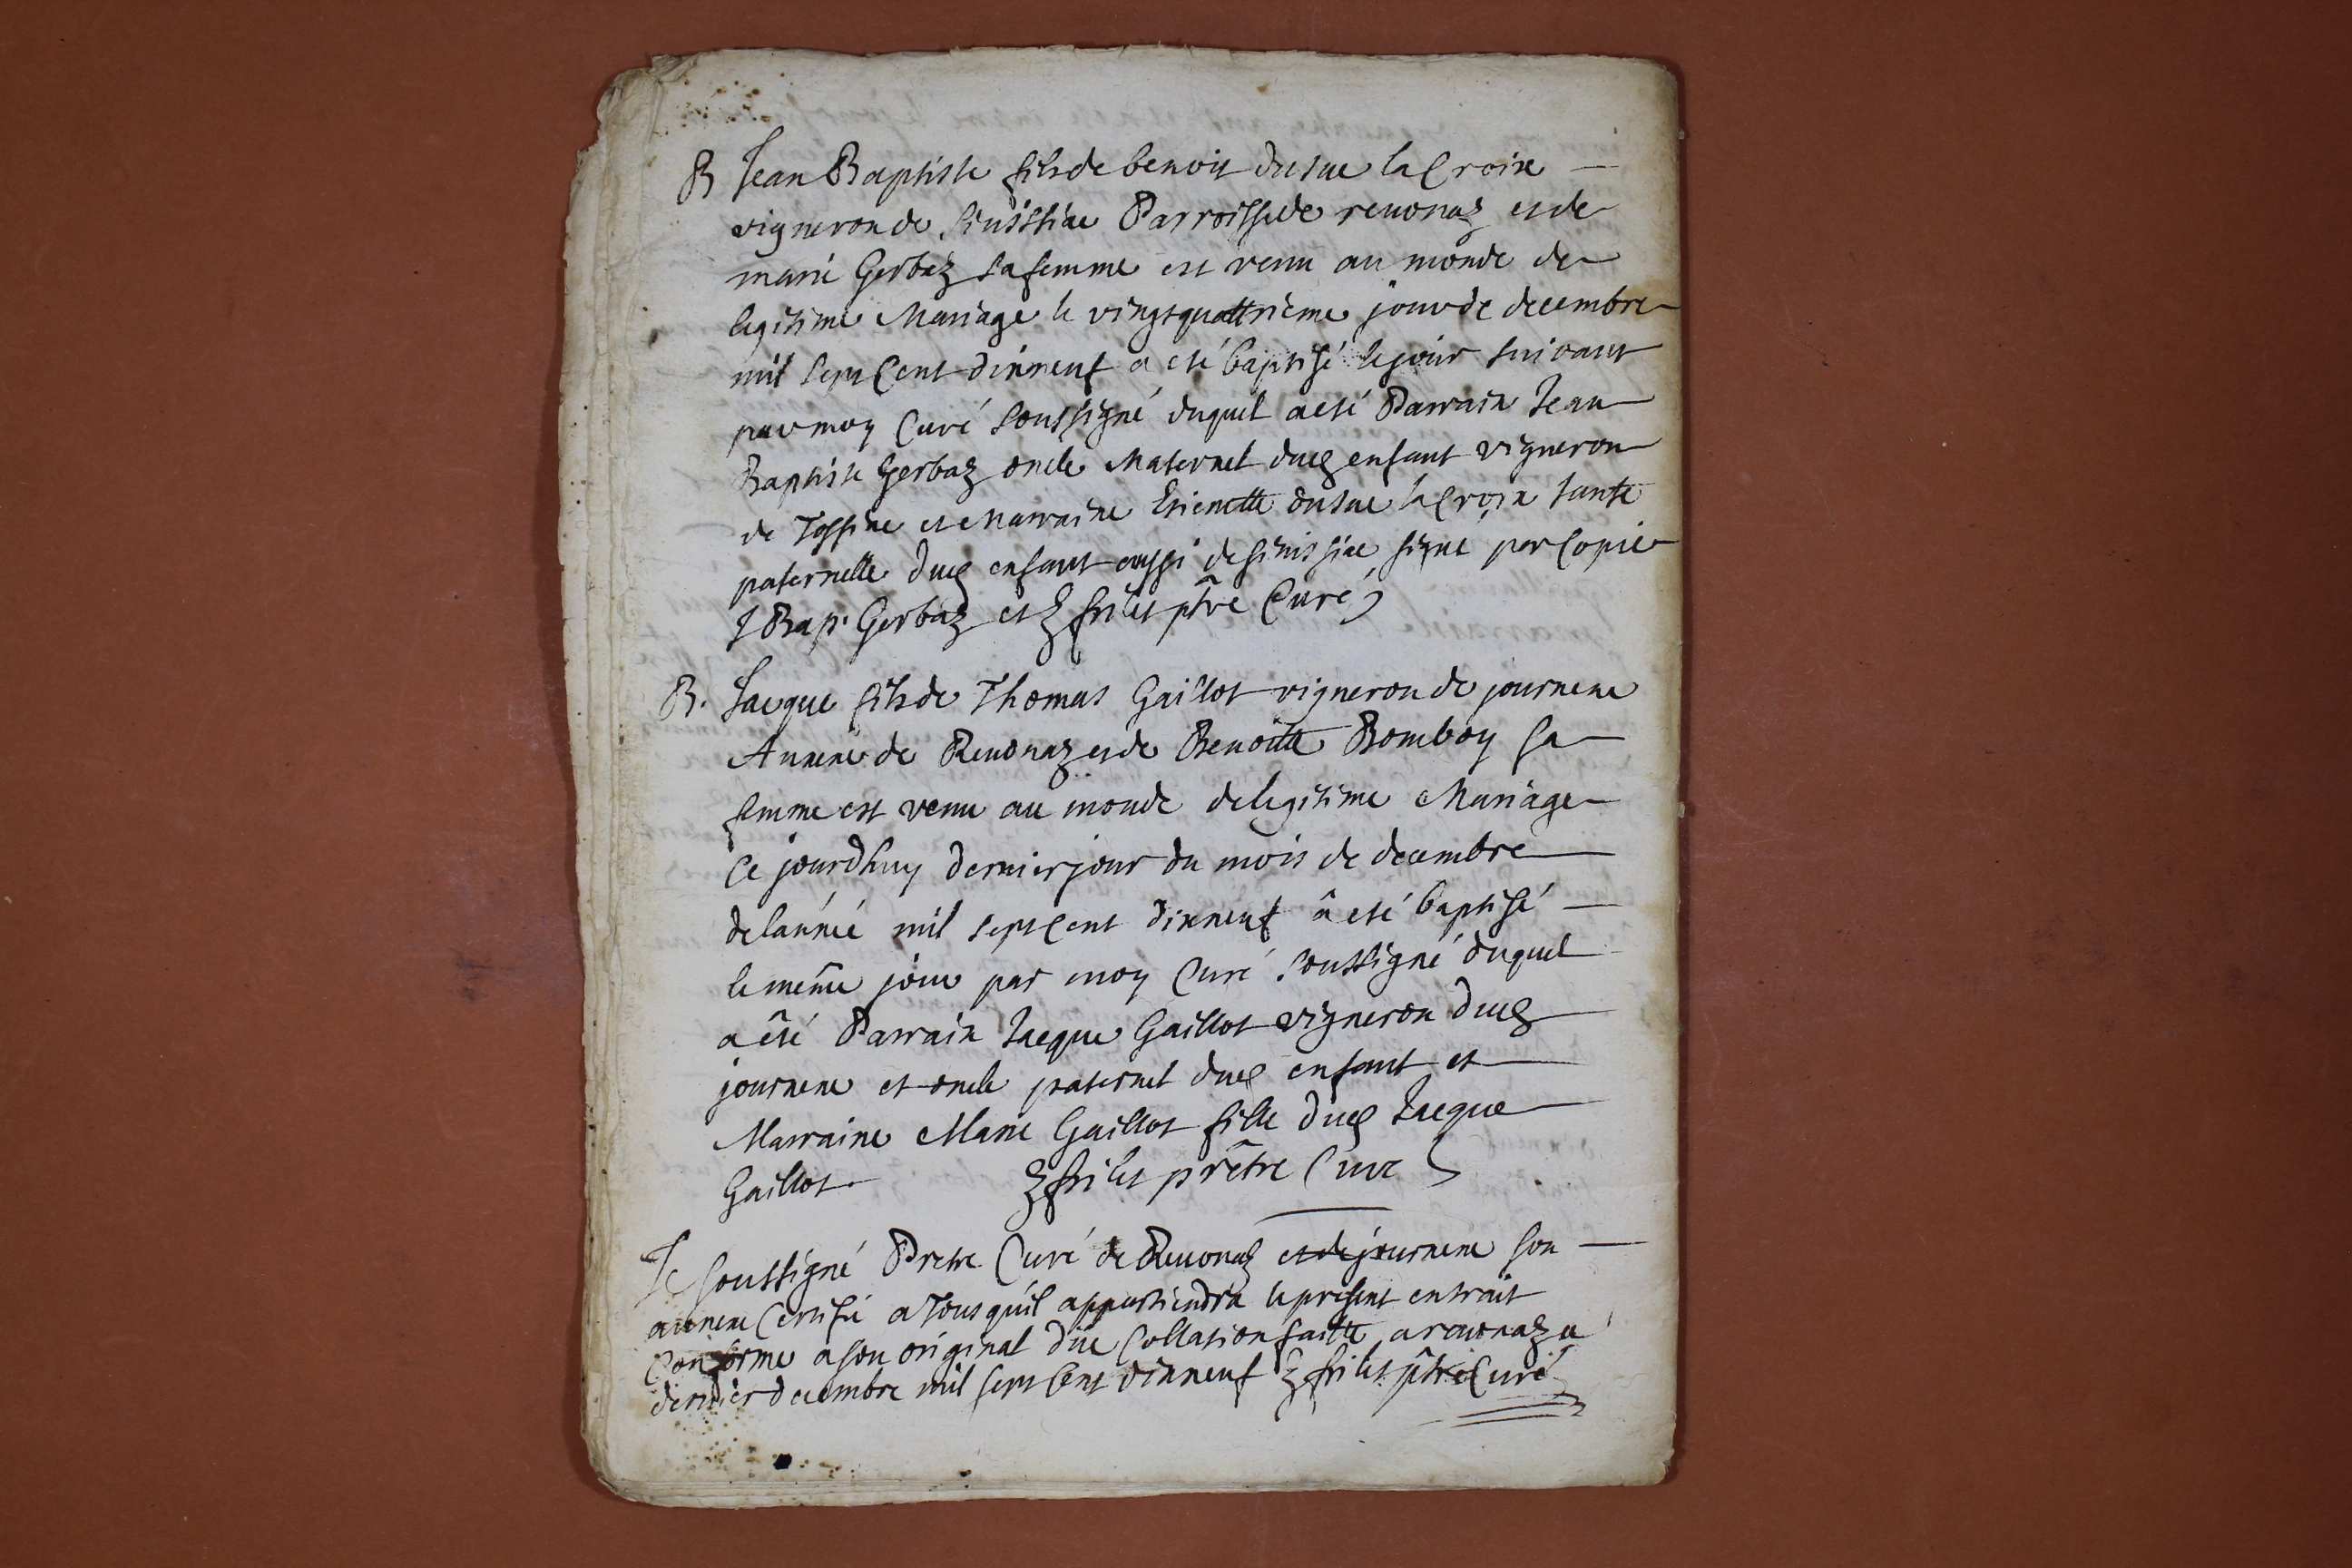 B Jean Baptiste fils de benoit dusue la Croix
vigneron de sinissiae Parroisse de reuonaz et de
marie Gerbaz sa femme est venu au monde de
legitime Mariage le vingtquattrieme jour de decembre
mil sept Cent dixneuf a eté baptisé le jour suivant
par moy Curé soussigné duquel a eté Parrain Jean
Baptiste Gerbaz oncle Maternel duq enfant vigneron
de et Marraine Etienette dusue la Croix tante
paternelle duq enfant aussi de sinissiae signé par Copie
J Bap. Gerbaz et frilet ptre Curé
B. Jacque fils de Thomas Gaillot vigneron de journene
Annexe de Reuonaz et de Benoitte Bomboy sa
femme est venu au monde de legitime Mariage
Ce jourdhuy dernier jour du mois de decembre
de lannée mil sept Cent dixneuf â eté baptisé
le même jour par moy Curé soussigné duquel
a êté Parrain Jacque Gaillot vigneron duq
journene et oncle paternel duq enfant et
Marraine Marie Gaillot fille duq Jacque
Gaillot frilet prêtre Curé
Je soussigné Pretre Curé de Reuonaz et de journene son
annexe Certifie a Tous quil appartiendra le present extrait
Conforme a son original düe Collation faitte a reuonaz a
dernier decembre mil sept Cent dixneuf frilet ptre Curé